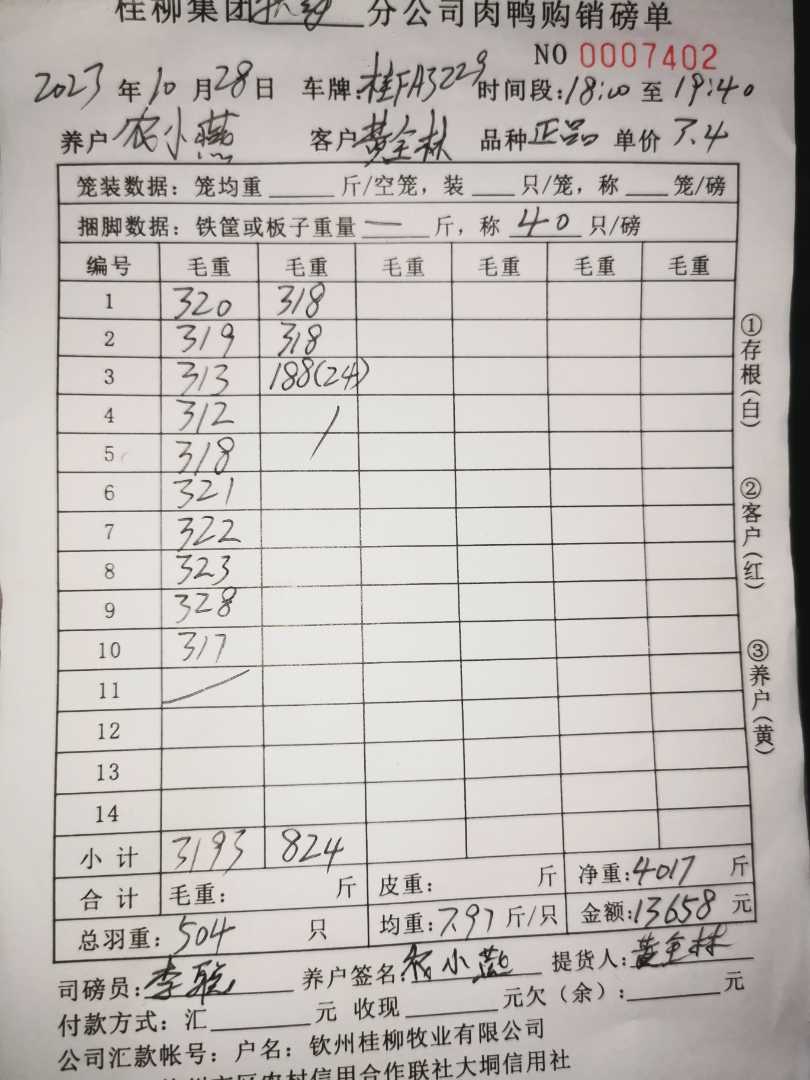 桂柳集团 分公司肉鸭购销磅单
NO 0007402
2023 年 10 月 28 日 车牌:桂FA3229 时间段:18:00 至 19:40
养户 农小燕 客户 黄全林 品种 正品 单价 3.4
笼装数据: 笼均重 ____ 斤/空笼, 装 ____ 只/笼, 称 ____ 笼/磅
捆脚数据: 铁筐或板子重量 — 斤, 称 40 只/磅
编号 毛重 毛重 毛重 毛重 毛重 毛重
1 320 318
2 319 318
3 313 188(24)
4 312 /
5 318
6 321
7 322
8 323
9 328
10 317
11 /
12
13
14
小计 3193 824
合计 毛重: 斤 皮重: 斤 净重:4017 斤
总羽重: 504 只 均重:7.97 斤/只 金额:13658 元
司磅员: 李聪 养户签名: 农小燕 提货人: 黄全林
付款方式: 汇 ____ 元 收现 ____ 元欠(余): ____ 元
公司汇款帐号: 户名: 钦州桂柳牧业有限公司
市区农村信用合作联社大垌信用社
①存根(白)
②客户(红)
③养户(黄)